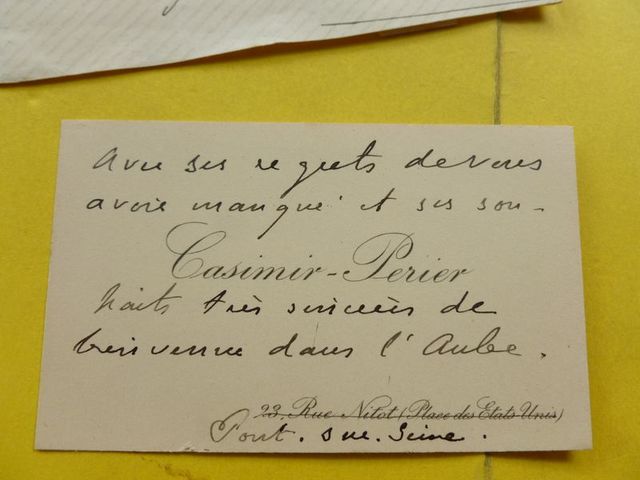 Avec ses regrets de vous
avoir manqué et ses sou-
Casimir-Perier
haits très sincères de
bienvenue dans l'Aube.
23, Rue Nitot (Place des Etats Unis)
Pont. sur. Seine.